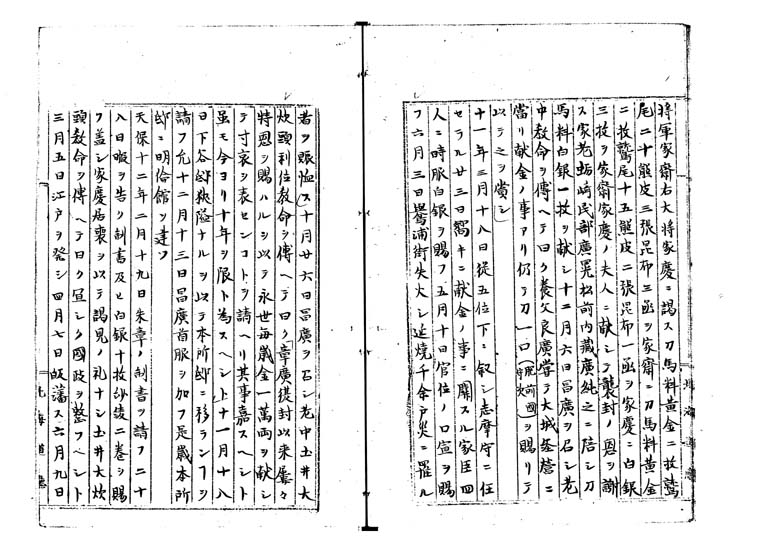 将軍家齋右大将家慶ニ謁ス刀馬料黄金二枚鷲
尾二十熊皮三張昆布三函ヲ家齋ニ刀馬料黄金
二枚鷲尾十五熊皮二張昆布一函ヲ家慶ニ白銀
三枚ヲ家齋家慶ノ夫人ニ献シテ襲封ノ恩ヲ謝
ス家老蛎崎民部廣晃松前内藏廣純之ニ陪シ刀
馬料白銀一枚ヲ献シ十二月六日昌廣ヲ召シ老
中教命ヲ傳ヘテ曰ク養父良廣嘗テ大城経営ニ
當リ献金ノ事アリ仍テ刀一口(肥前國)ヲ賜リテ
以テ之ヲ賞シ
十一年三月十八日從五位下ニ叙シ志摩守ニ任
セラル廿三日嚮キニ献金ノ事ニ關スル家臣四
人ニ時服白銀ヲ賜フ五月十日官位ノ口宣ヲ賜
フ六月三日 浦街失火シ延燒千余戸災ニ罹ル
者ヲ賑恤ス十月廿六日昌廣ヲ召シ老中土井大
炊頭利位教命ヲ傳ヘテ曰ク章廣從封以来屡々
特恩ヲ賜ハルヲ以テ永世毎歳金一萬両ヲ献シ
テ寸衷ヲ表センコトヲ請ヘリ其事嘉スヘシト
雖モ今ヨリ十年ヲ限ト為スヘシト十一月十八
日下谷邸狹隘ナルヲ以テ本所邸ニ移ランヿヲ
請フ允十二月十三日昌廣首服ヲ加フ是歳本所
邸ニ明倫館ヲ建ツ
天保十二年二月十九日朱章ノ制書ヲ請フ二十
八日暇ヲ告ク制書及ヒ白銀十枚紗綾二巻ヲ賜
フ盖シ家慶居喪ヲ以テ謁見ノ礼ナシ土井大炊
頭教命ヲ傳ヘテ曰ク宜シク國政ヲ整フヘシト
三月五日江戸ヲ発シ四月七日皈藩ス六月九日
北海道廳